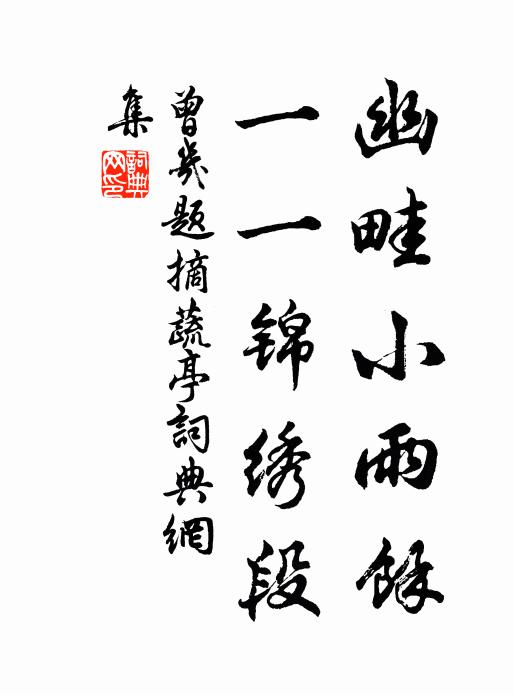 幽畦小雨餘
一一锦绣段
曾幾題摘蔬亭詞典網
集
詞典网印